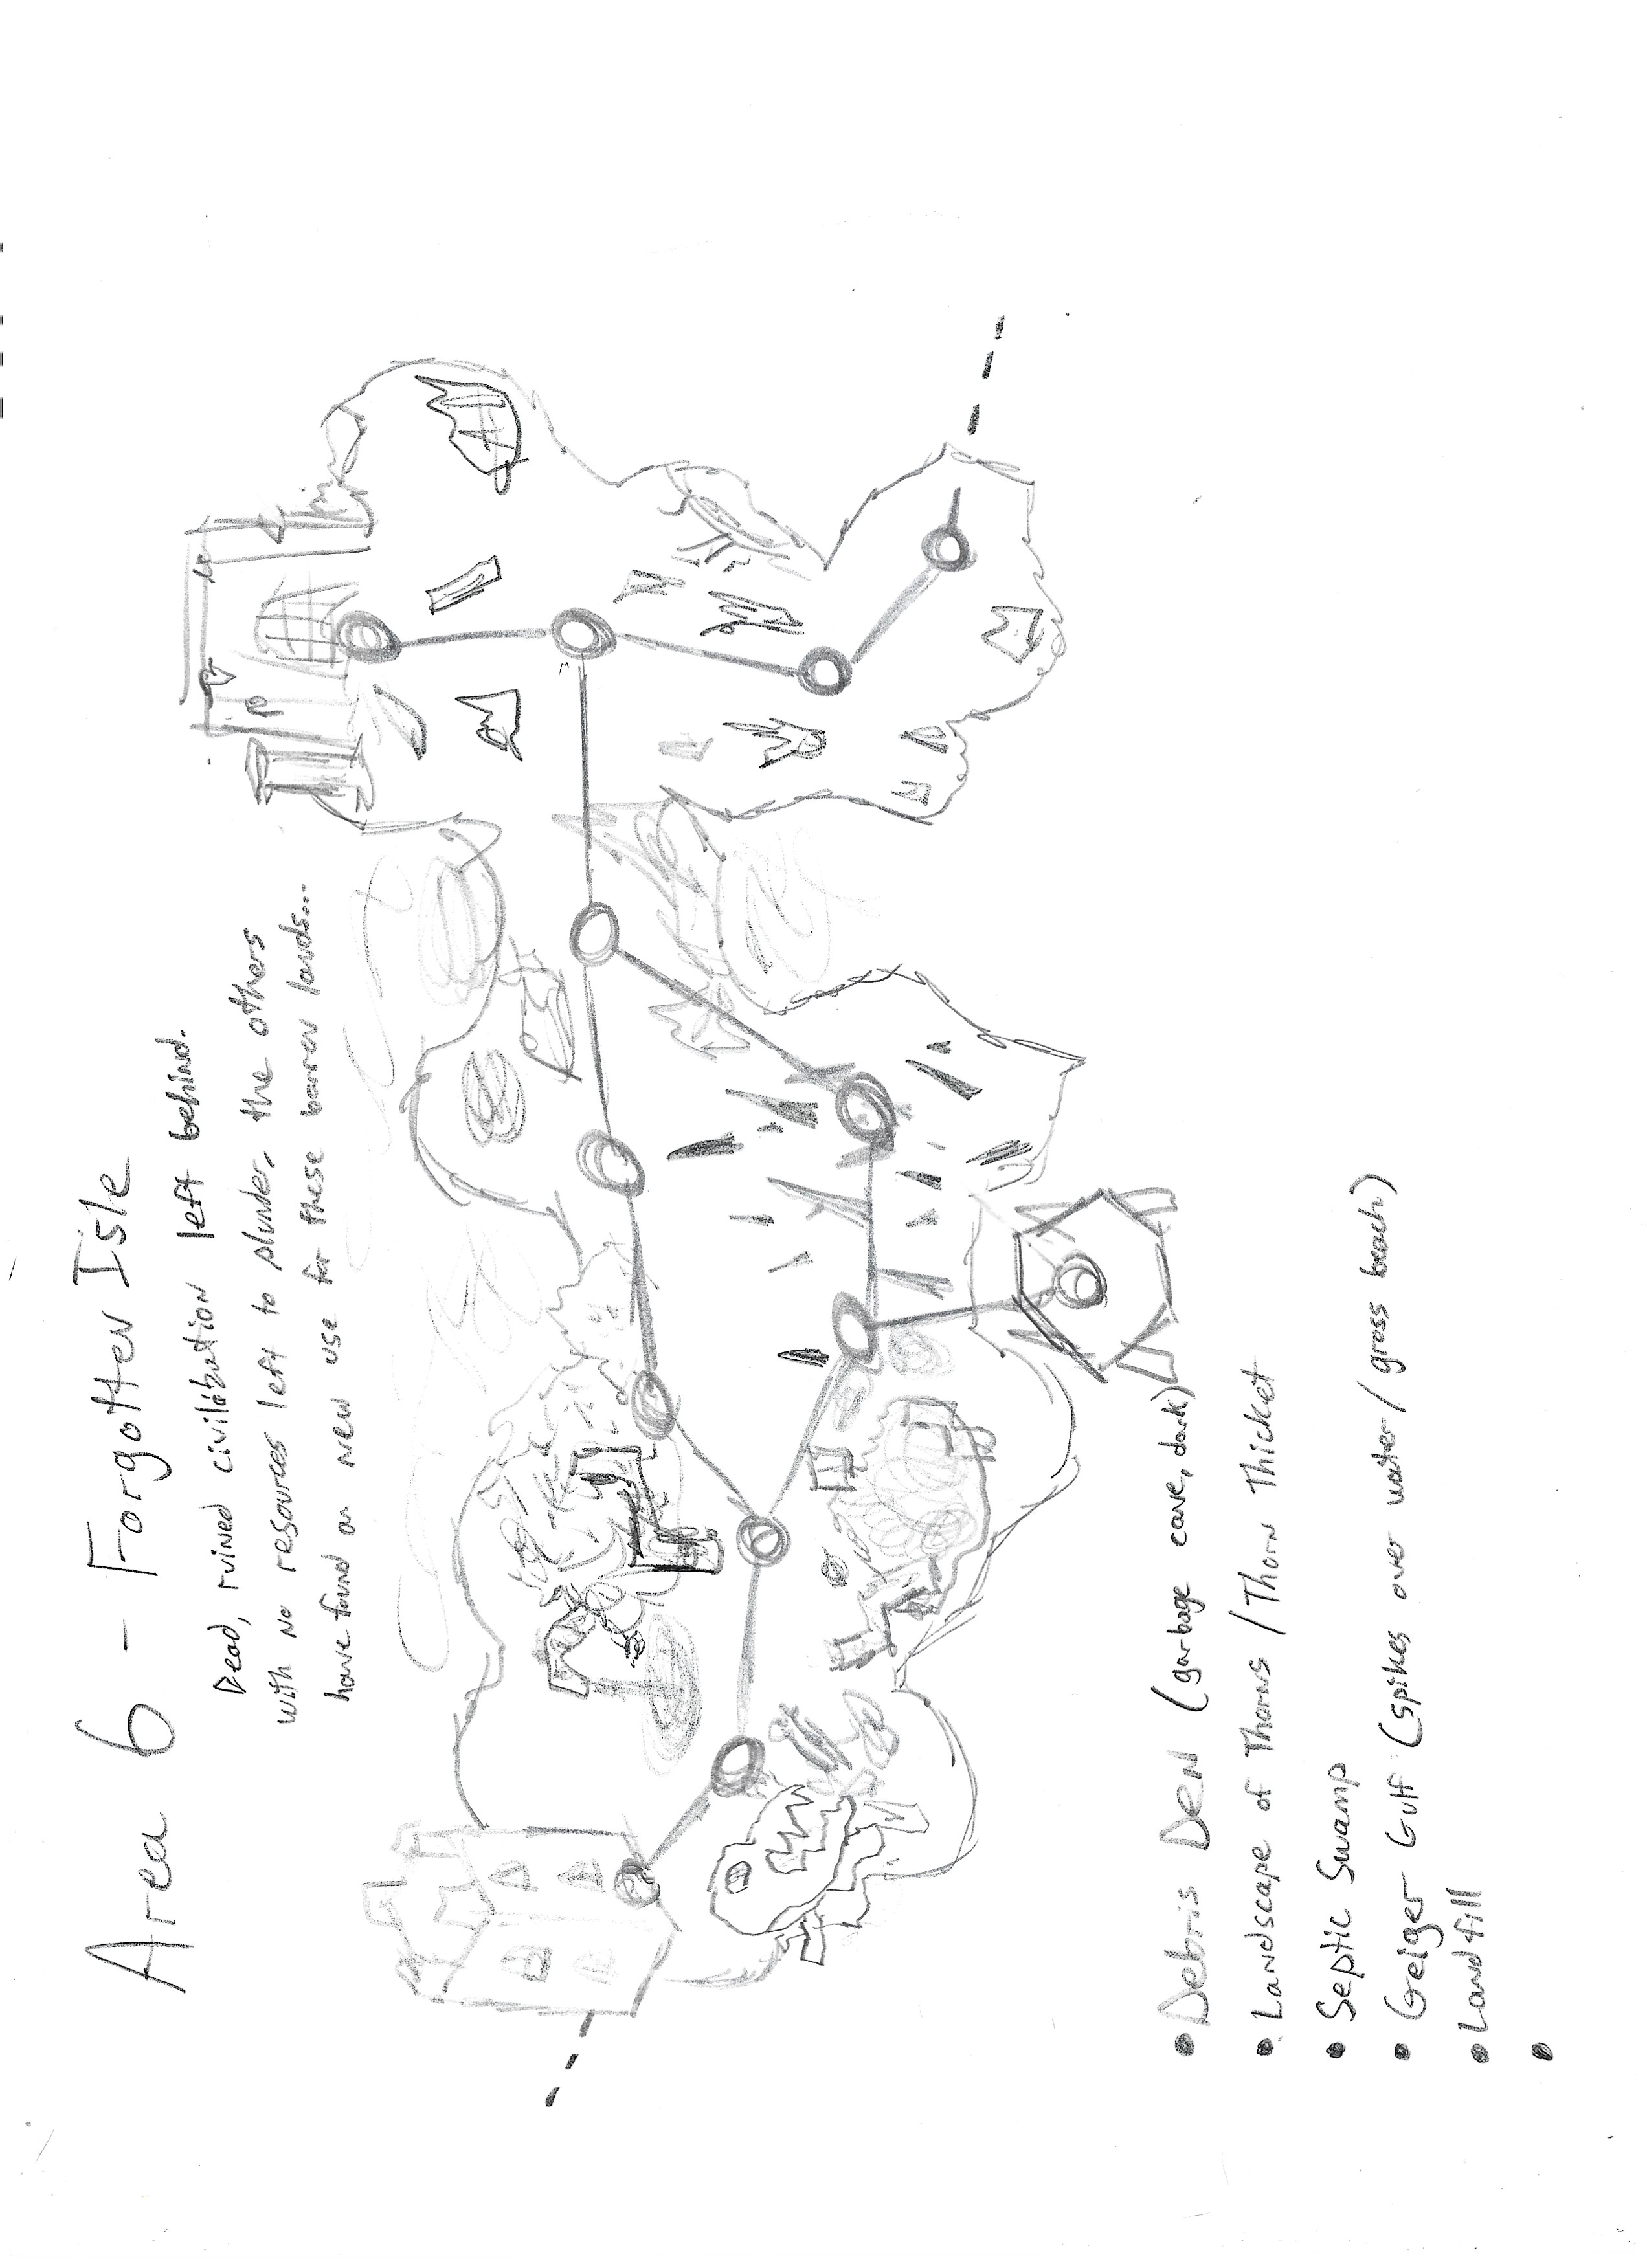 Area 6 - Forgotten Isle
Dead, ruined civilization left behind.
with no resources left to plunder, the others
have found an new use for these barren lands...
• Debris Den (garbage cave, dark)
• Landscape of Thorns / Thorn Thicket
• Septic Swamp
• Geiger Gulf (spikes over water / gross beach)
• Landfill
•